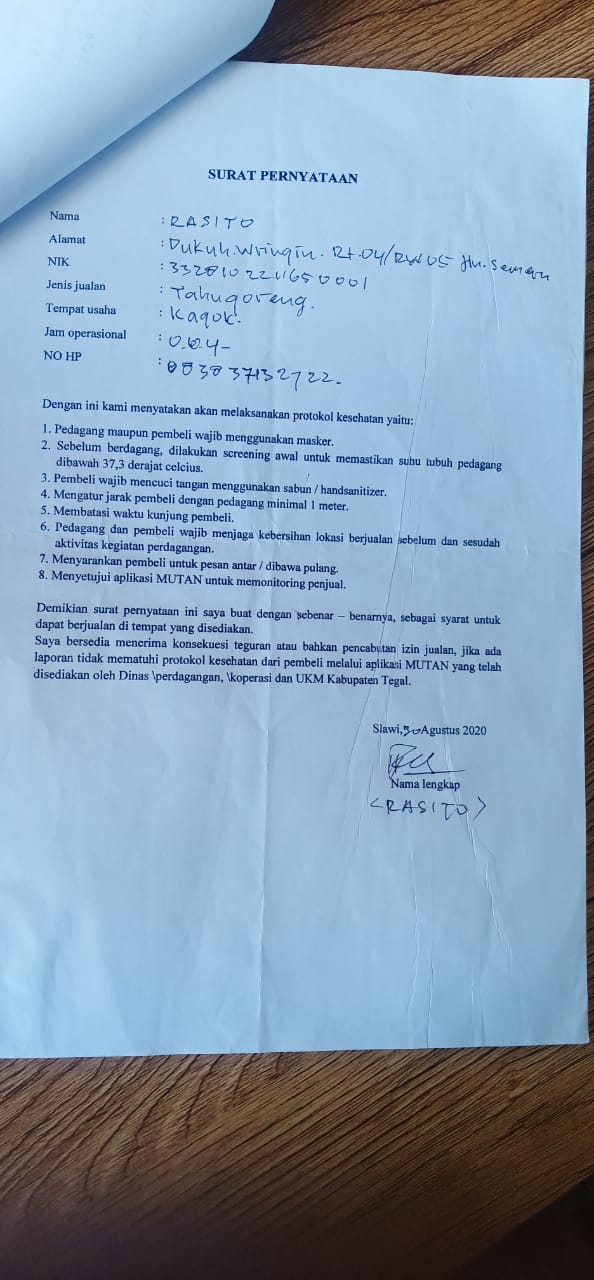 SURAT PERNYATAAN
Nama : RASITO
Alamat : Dukuh.Wringin. Rt.04/RW05 Jln.Semeru
NIK : 3328102211650001
Jenis jualan : Tahugoreng.
Tempat usaha : Kagok.
Jam operasional :
NO HP :
Dengan ini kami menyatakan akan melaksanakan protokol kesehatan yaitu:
1. Pedagang maupun pembeli wajib menggunakan masker.
2. Sebelum berdagang, dilakukan screening awal untuk memastikan suhu tubuh pedagang
dibawah 37,3 derajat celcius.
3. Pembeli wajib mencuci tangan menggunakan sabun / handsanitizer.
4. Mengatur jarak pembeli dengan pedagang minimal 1 meter.
5. Membatasi waktu kunjung pembeli.
6. Pedagang dan pembeli wajib menjaga kebersihan lokasi berjualan sebelum dan sesudah
aktivitas kegiatan perdagangan.
7. Menyarankan pembeli untuk pesan antar / dibawa pulang.
8. Menyetujui aplikasi MUTAN untuk memonitoring penjual.
Demikian surat pernyataan ini saya buat dengan sebenar – benarnya, sebagai syarat untuk
dapat berjualan di tempat yang disediakan.
Saya bersedia menerima konsekuesi teguran atau bahkan pencabutan izin jualan, jika ada
laporan tidak mematuhi protokol kesehatan dari pembeli melalui aplikasi MUTAN yang telah
disediakan oleh Dinas \perdagangan, \koperasi dan UKM Kabupaten Tegal.
Slawi, 30 Agustus 2020
Nama lengkap
<RASITO>